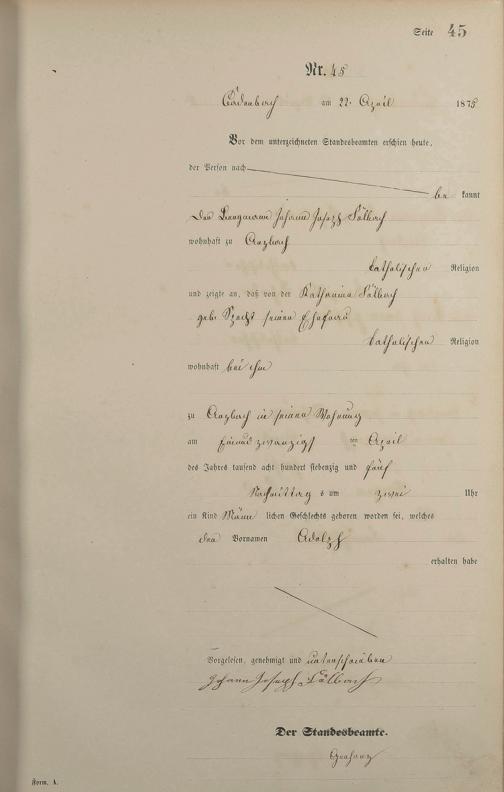 Seite 45
Nr. 45
Cadenbach am 22. April 1875
Vor dem unterzeichneten Standesbeamten erschien heute,
der Person nach
be kannt
der Bergmann Johann Joseph Sälbach
wohnhaft zu Arzbach
katholischen Religion
und zeigte an, daß von der Katharina Sälbach
geb. Specht seiner Ehefrau
katholischen Religion
wohnhaft bei ihm
zu Arzbach in seiner Wohnung
am einund zwanzigst ten April
des Jahres tausend acht hundert siebenzig und fünf
Nachmittag s um zwei Uhr
ein Kind Männ lichen Geschlechts geboren worden sei, welches
den Vornamen Adolph
erhalten habe
Vorgelesen, genehmigt und unterschrieben
Johann Joseph Sälbach
Der Standesbeamte.
Form. A.